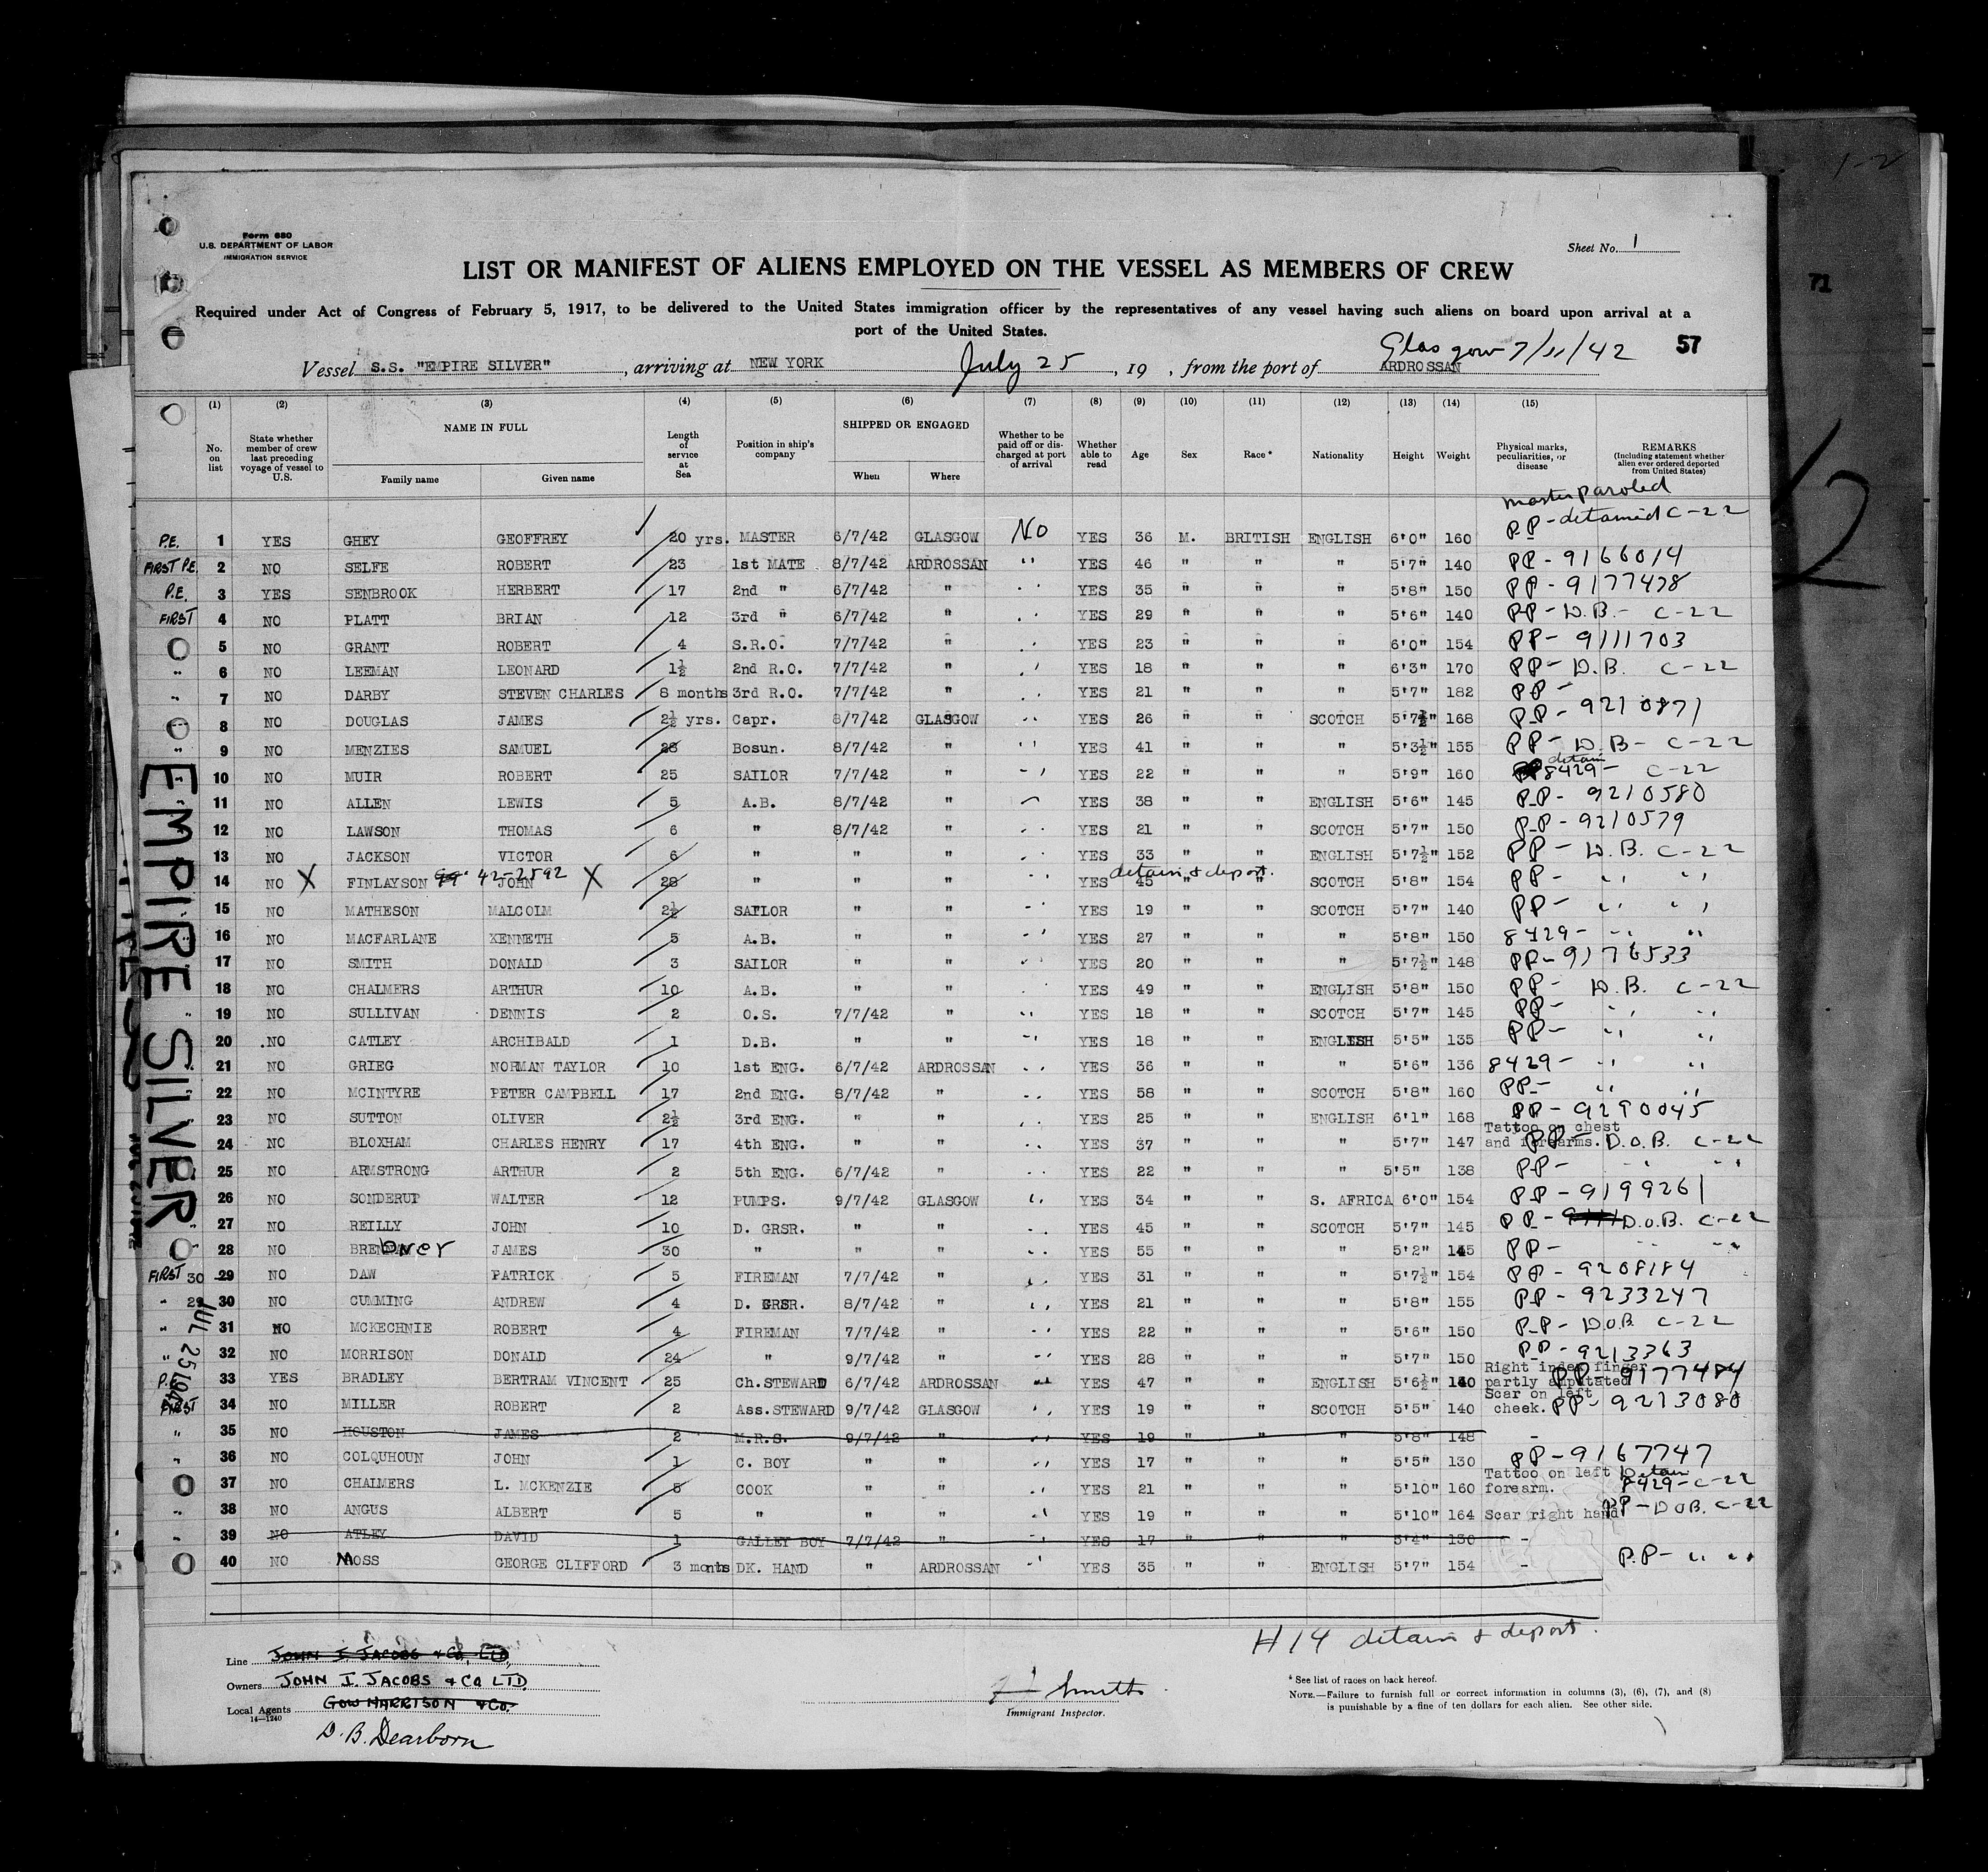 1-2
71
Form 680
U.S. DEPARTMENT OF LABOR
IMMIGRATION SERVICE
Sheet No. 1
LIST OR MANIFEST OF ALIENS EMPLOYED ON THE VESSEL AS MEMBERS OF CREW
Required under Act of Congress of February 5, 1917, to be delivered to the United States immigration officer by the representatives of any vessel having such aliens on board upon arrival at a
port of the United States.
Glasgow 7/11/42 57
Vessel S.S. "EMPIRE SILVER", arriving at NEW YORK July 25, 19 , from the port of ARDROSSAN
(1) (2) (3) (4) (5) (6) (7) (8) (9) (10) (11) (12) (13) (14) (15)
No. on list
State whether member of crew last preceding voyage of vessel to U.S.
NAME IN FULL
Family name Given name
Length of service at Sea
Position in ship's company
SHIPPED OR ENGAGED
When Where
Whether to be paid off or discharged at port of arrival
Whether able to read
Age Sex Race* Nationality Height Weight
Physical marks, peculiarities, or disease
REMARKS
(Including statement whether alien ever ordered deported from United States)
master paroled
P.E. 1 YES GHEY GEOFFREY 20 yrs. MASTER 6/7/42 GLASGOW NO YES 36 M. BRITISH ENGLISH 6'0" 160 PP - detained C-22
FIRST P.E. 2 NO SELFE ROBERT 23 1st MATE 8/7/42 ARDROSSAN " YES 46 " " " 5'7" 140 PP - 9166014
P.E. 3 YES SENBROOK HERBERT 17 2nd " 6/7/42 " " YES 35 " " " 5'8" 150 PP - 9177478
FIRST 4 NO PLATT BRIAN 12 3rd " 6/7/42 " " YES 29 " " " 5'6" 140 PP - D.B. - C-22
5 NO GRANT ROBERT 4 S.R.O. 7/7/42 " " YES 23 " " " 6'0" 154 PP - 9111703
" 6 NO LEEMAN LEONARD 1½ 2nd R.O. 7/7/42 " " YES 18 " " " 6'3" 170 PP - D.B. C-22
" 7 NO DARBY STEVEN CHARLES 8 months 3rd R.O. 7/7/42 " " YES 21 " " " 5'7" 182 PP -
8 NO DOUGLAS JAMES 2½ yrs. Capr. 8/7/42 GLASGOW " YES 26 " " SCOTCH 5'7½" 168 PP - 9210871
" 9 NO MENZIES SAMUEL 28 Bosun. 8/7/42 " " YES 41 " " " 5'3½" 155 PP - D.B - C-22
" 10 NO MUIR ROBERT 25 SAILOR 7/7/42 " " YES 22 " " " 5'9" 160 detain 8429 - C-22
11 NO ALLEN LEWIS 5 A.B. 8/7/42 " " YES 38 " " ENGLISH 5'6" 145 PP - 9210580
12 NO LAWSON THOMAS 6 " 8/7/42 " " YES 21 " " SCOTCH 5'7" 150 PP - 9210579
13 NO JACKSON VICTOR 6 " " " " YES 33 " " ENGLISH 5'7½" 152 PP - D.B. C-22
14 NO X FINLAYSON 99' 42-2592 JOHN X 28 " " " " YES detain & deport. 45 " " SCOTCH 5'8" 154 PP - " "
15 NO MATHESON MALCOLM 2½ SAILOR " " " YES 19 " " SCOTCH 5'7" 140 PP - " "
16 NO MACFARLANE KENNETH 5 A.B. " " " YES 27 " " " 5'8" 150 8429 - " "
17 NO SMITH DONALD 3 SAILOR " " " YES 20 " " " 5'7½" 148 PP - 9176533
18 NO CHALMERS ARTHUR 10 A.B. " " " YES 49 " " ENGLISH 5'8" 150 PP - D.B. C-22
" 19 NO SULLIVAN DENNIS 2 O.S. 7/7/42 " " YES 18 " " SCOTCH 5'7" 145 PP - " "
20 .NO CATLEY ARCHIBALD 1 D.B. " " " YES 18 " " ENGLISH 5'5" 135 PP - " "
21 NO GRIEG NORMAN TAYLOR 10 1st ENG. 6/7/42 ARDROSSAN " YES 36 " " " 5'6" 136 8429 - " "
22 NO MCINTYRE PETER CAMPBELL 17 2nd ENG. 8/7/42 " " YES 58 " " SCOTCH 5'8" 160 PP - " "
23 NO SUTTON OLIVER 2½ 3rd ENG. " " " YES 25 " " ENGLISH 6'1" 168 PP - 9290045
24 NO BLOXHAM CHARLES HENRY 17 4th ENG. " " " YES 37 " " " 5'7" 147 Tattoo on chest and forearms. PP - D.O.B. C-22
25 NO ARMSTRONG ARTHUR 2 5th ENG. 6/7/42 " " YES 22 " " " 5'5" 138 PP - " "
26 NO SONDERUP WALTER 12 PUMPS. 9/7/42 GLASGOW " YES 34 " " S. AFRICA 6'0" 154 PP - 9199261
" 27 NO REILLY JOHN 10 D. GRSR. " " " YES 45 " " SCOTCH 5'7" 145 PP - 9111 D.O.B. C-22
28 NO BREMner JAMES 30 " " " " YES 55 " " " 5'2" 145 PP - " "
FIRST 30 29 NO DAW PATRICK 5 FIREMAN 7/7/42 " " YES 31 " " " 5'7½" 154 PP - 9208184
" 29 30 NO CUMMING ANDREW 4 D. GRSR. 8/7/42 " " YES 21 " " " 5'8" 155 PP - 9233247
" 31 NO MCKECHNIE ROBERT 4 FIREMAN 7/7/42 " " YES 22 " " " 5'6" 150 PP - D.O.B. C-22
" 32 NO MORRISON DONALD 24 " 9/7/42 " " YES 28 " " " 5'7" 150 PP - 9213363
P.E. 33 YES BRADLEY BERTRAM VINCENT 25 Ch.STEWARD 6/7/42 ARDROSSAN " YES 47 " " ENGLISH 5'6½" 140 Right index finger partly amputated PP - 9177484
FIRST 34 NO MILLER ROBERT 2 Ass.STEWARD 9/7/42 GLASGOW " YES 19 " " SCOTCH 5'5" 140 Scar on left cheek. PP - 9213080
" 35 NO HOUSTON JAMES 2 M.R.S. 9/7/42 " " YES 19 " " " 5'8" 148 -
" 36 NO COLQUHOUN JOHN 1 C. BOY " " " YES 17 " " " 5'5" 130 PP - 9167747
37 NO CHALMERS L. MCKENZIE 5 COOK " " " YES 21 " " " 5'10" 160 Tattoo on left forearm. Detain 8429 - C-22
" 38 NO ANGUS ALBERT 5 " " " " YES 19 " " " 5'10" 164 Scar right hand PP - DOB. C-22
" 39 NO ATLEY DAVID 1 GALLEY BOY 7/7/42 " " YES 17 " " " 5'4" 130 -
40 NO MOSS GEORGE CLIFFORD 3 monts DK. HAND " ARDROSSAN " YES 35 " " ENGLISH 5'7" 154 - P.P - " "
EMPIRE SILVER
JUL 25 1942
# 14 detain & deport.
Line JOHN I JACOBS & Co, LTD,
Owners JOHN I. JACOBS & Co LTD.
Local Agents GOW HARRISON & Co.
14-1240
D. B. Dearborn
Smith
Immigrant Inspector.
* See list of races on back hereof.
NOTE.—Failure to furnish full or correct information in columns (3), (6), (7), and (8)
is punishable by a fine of ten dollars for each alien. See other side.